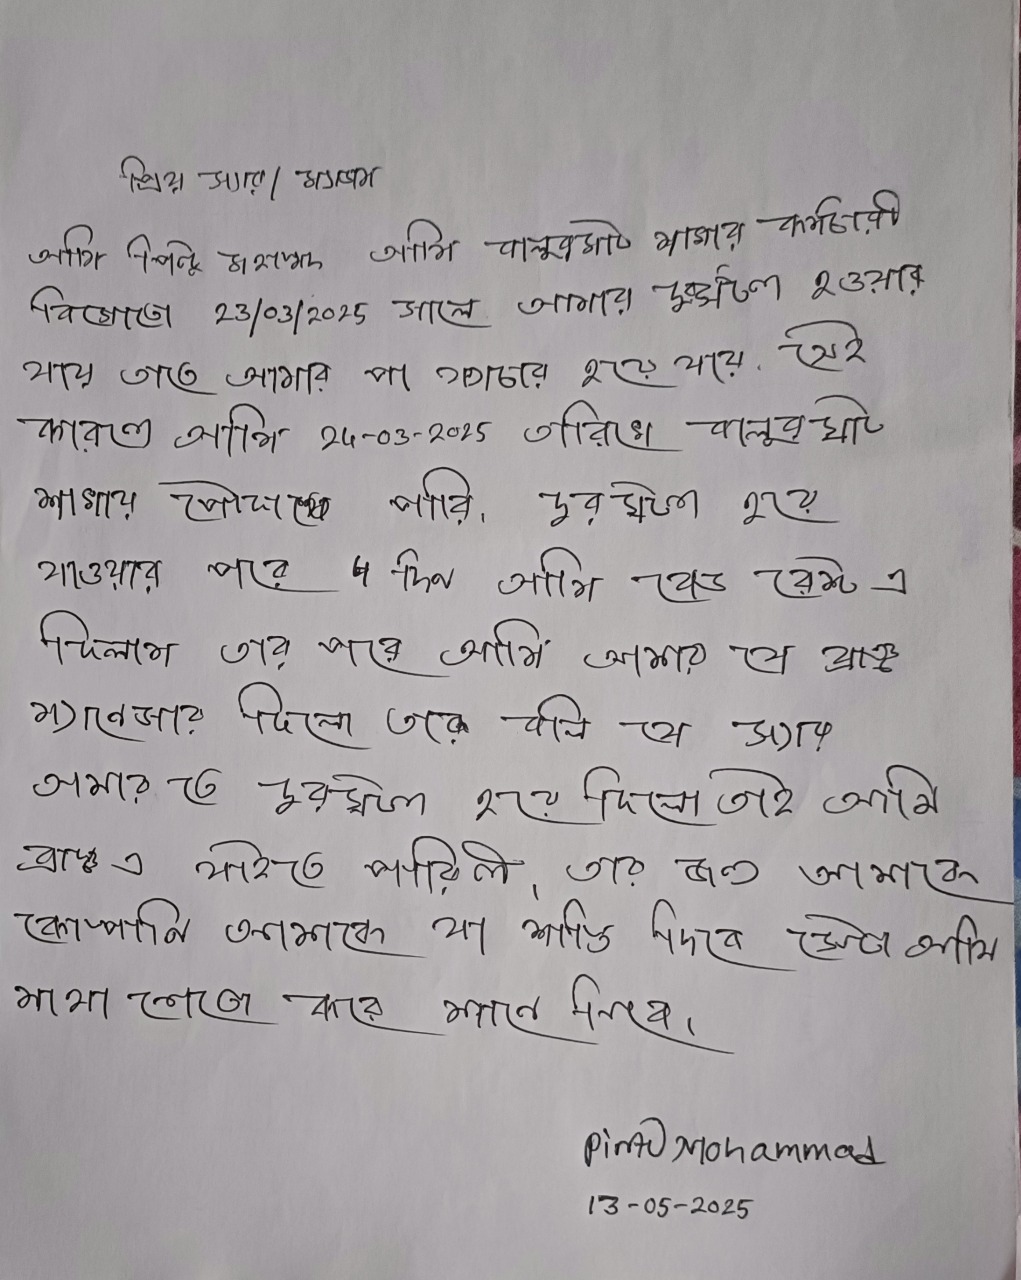 প্রিয় স্যার/ ম্যাডাম
আমি পিন্টু মহাম্মদ আমি বালুরঘাট শাখার কর্মচারী
বিগোতো 23/03/2025 সালে আমার দুরর্ঘটনা হওয়ার
যায় তাতে আমার পা ফাচার হয়ে যায়. সেই
কারনে আমি 24-03-2025 তারিখে বালুরঘাট
শাখায় পারি. দুরঘটনা হয়ে
যাওয়ার পরে 4 দিন আমি বেড রেস্ট এ
ছিলাম তার পরে আমি আমার যে ব্রাঞ্চ
ম্যানেজার ছিলো তাকে বলি যে স্যার
আমার তো দুরঘটনা হয়ে ছিলো তাই আমি
ব্রাঞ্চ এ যাইতে পারিনি, তার জন্য আমাকে
কোম্পানি আমাকে যা শাস্তি দিবে সেটা আমি
মাথা পেতে করে মেনে নিবে.
Pintu Mohammad
13-05-2025